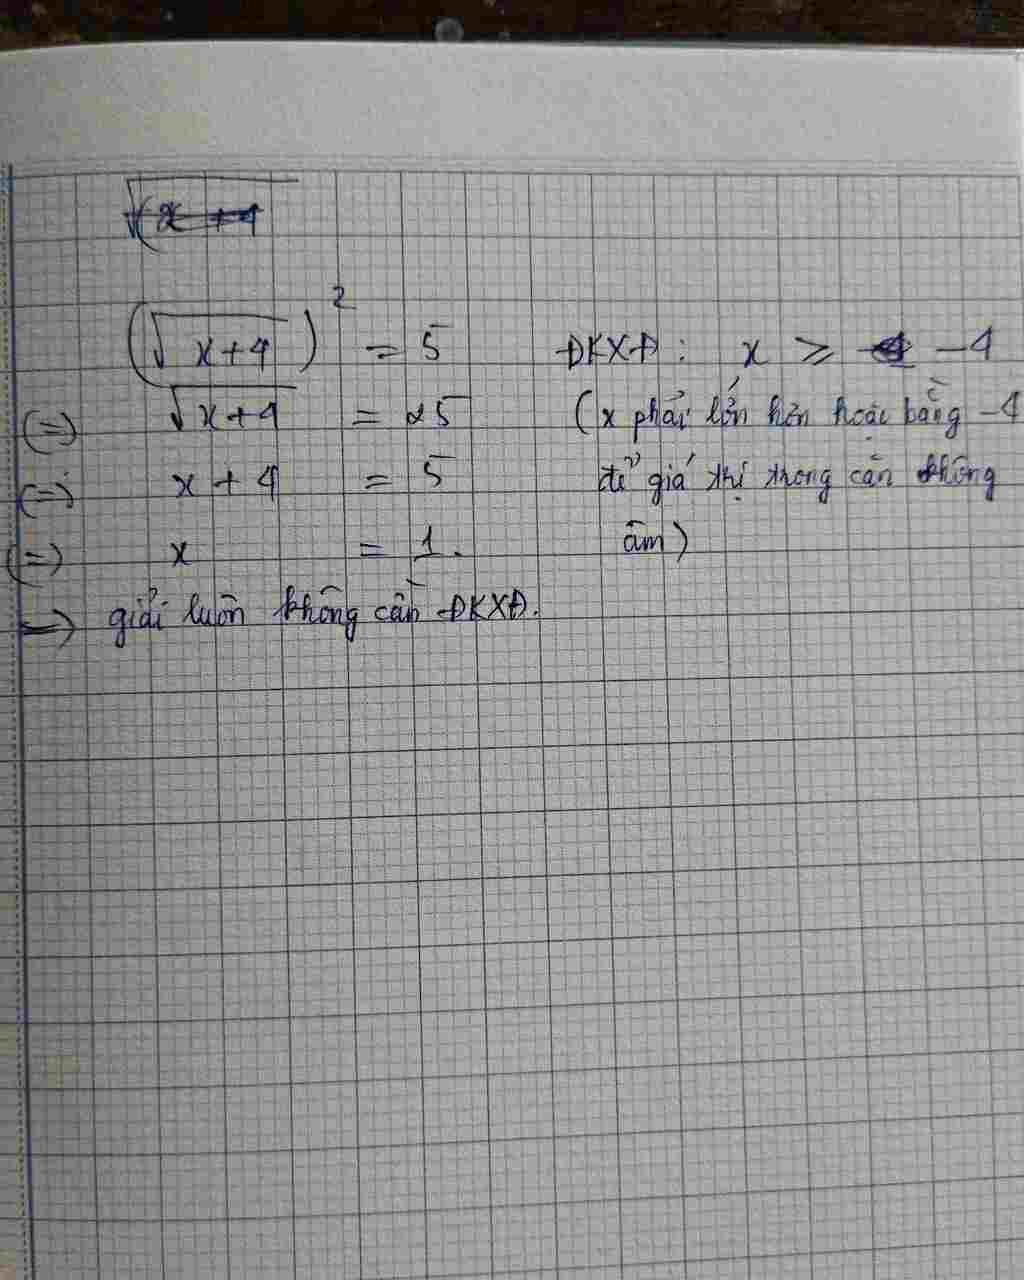 √(x+4
(√x+4)² = 5 ĐKXĐ: x ≥ -4
(=) √x+4 = 25 (x phải lớn hơn hoặc bằng -4
(=) x+4 = 5 để giá trị trong căn không
(=) x = 1. âm)
=> giải luôn không cần ĐKXĐ.